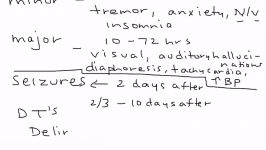 minor - tremor, anxiety, N/V
insomnia
major - 10-72 hrs
- visual, auditory halluci-
nations
diaphoresis, tachycardia,
↑BP
Seizures ← 2 days after
DT's 2/3 - 10 days after
Delir